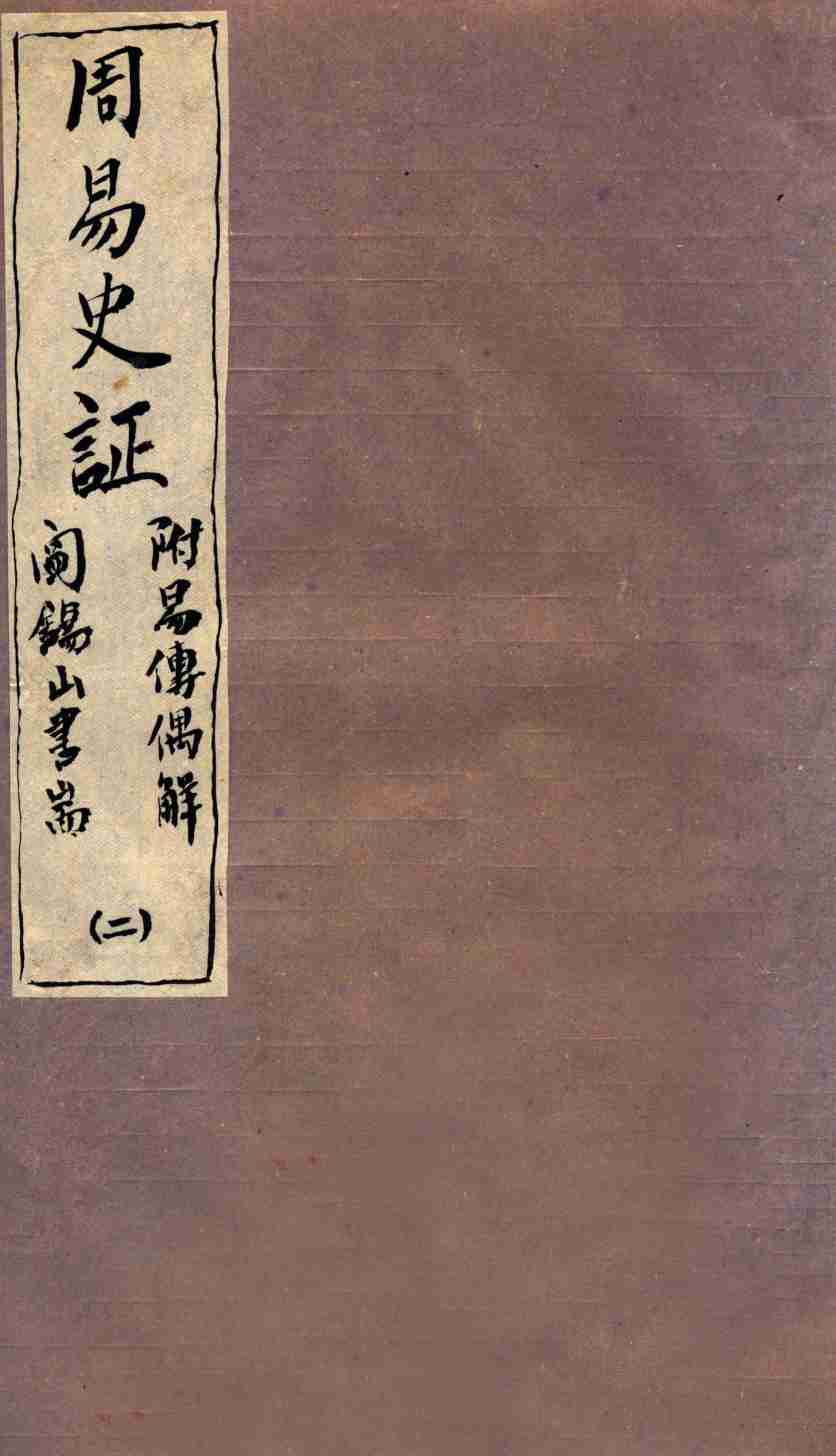 周易史証
附易傳偶解
阎錫山書耑
(二)